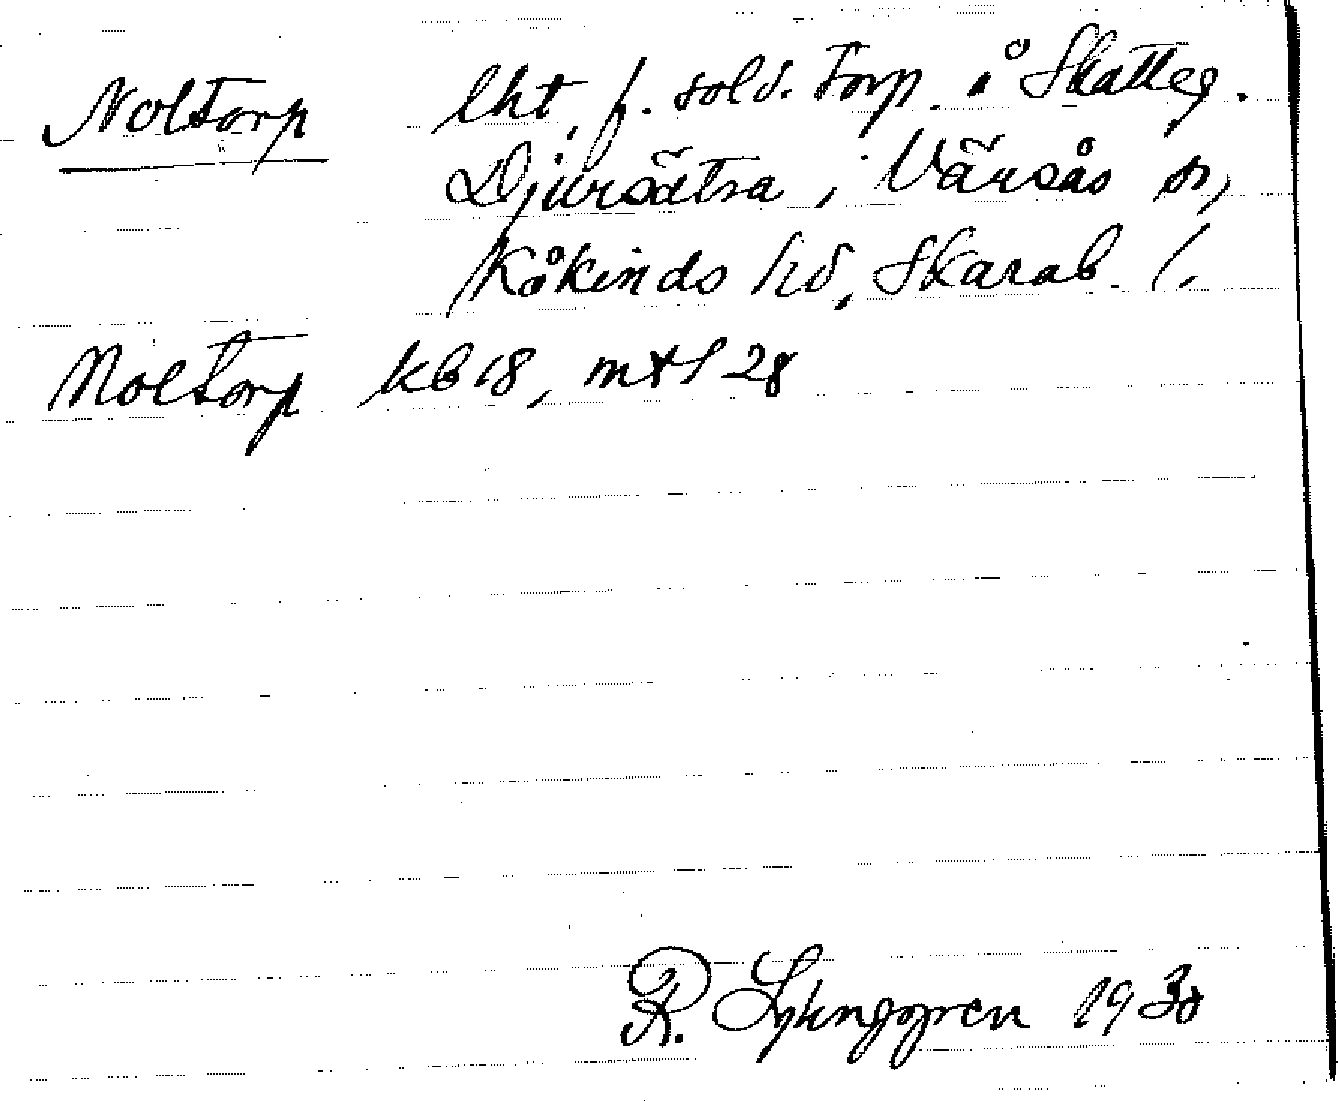 Noltorp lht, f. sold. torp. å Skatteg.
Djursätra, Värsås sn,
Kåkinds hd, Skarab. l.
Noltorp kb 18, mtl 28
R. Ljunggren 1930